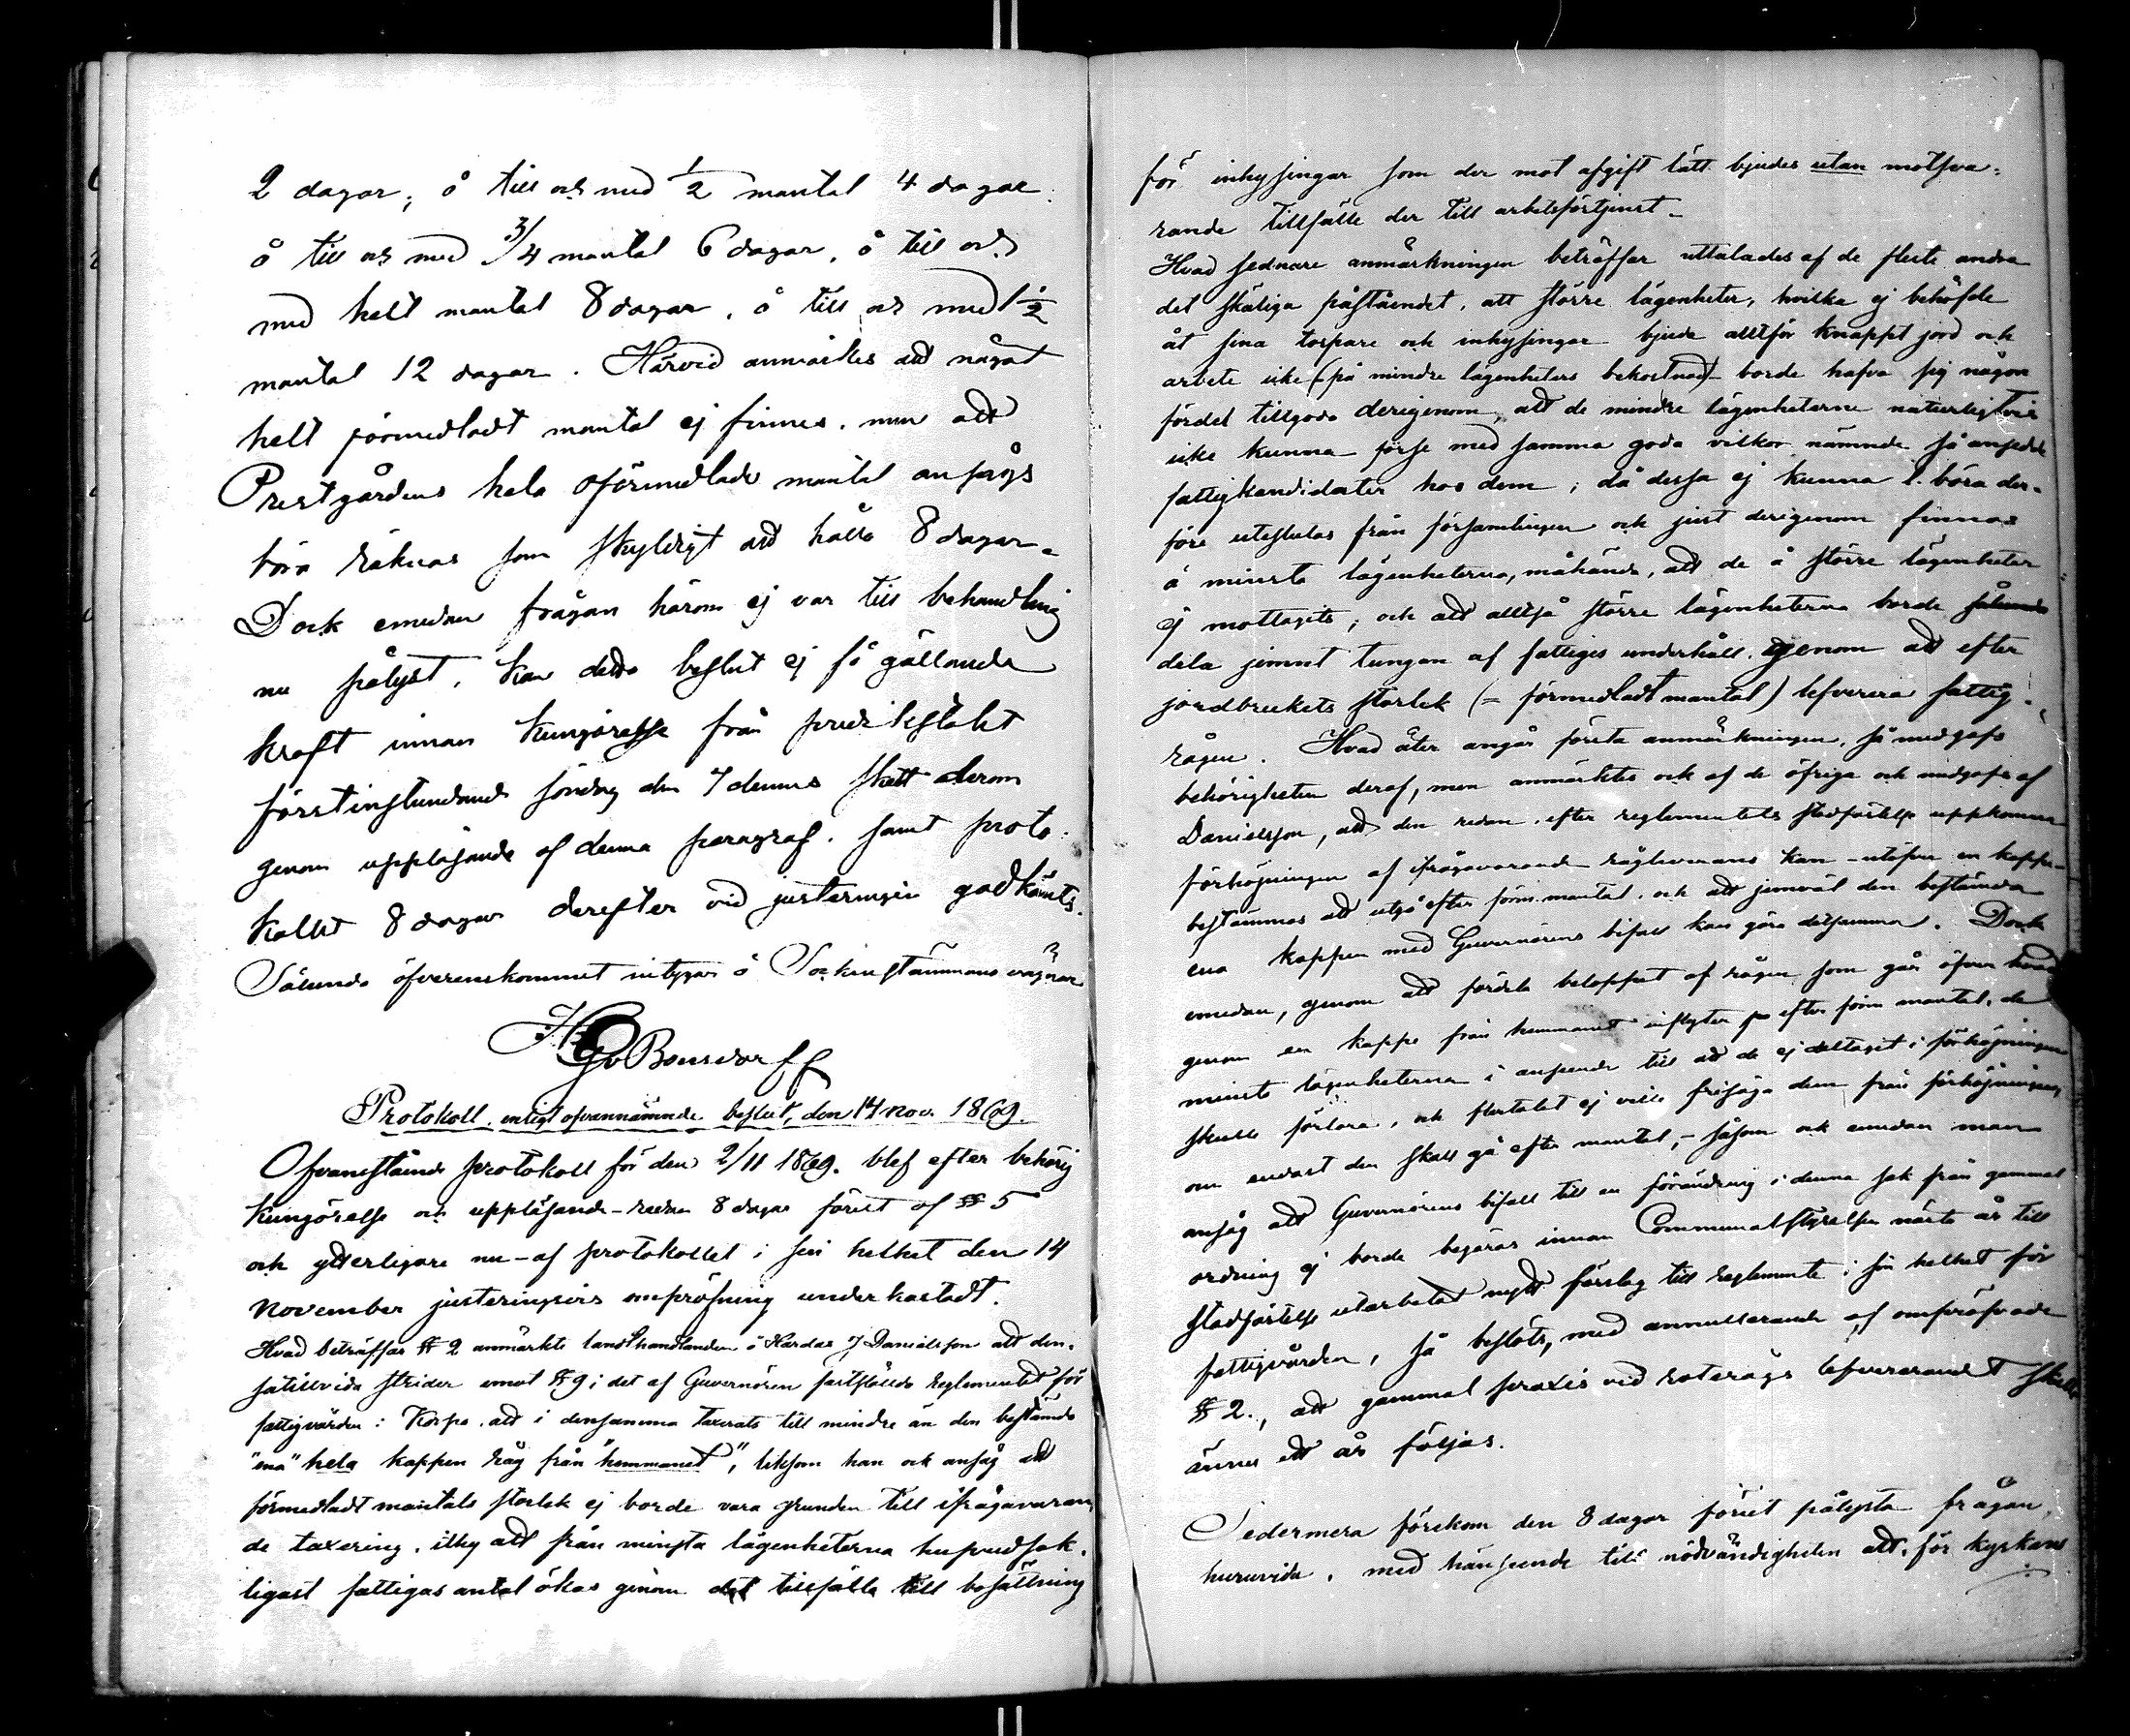 2 dagar; å till och med 1/2 mantal 4 dagar.
å till och med 3/4 mantal 6 dagar, å till och
med helt mantal 8 dagar, å till och med 1 1/2
mantal 12 dagar. Härvid anmärktes att något
helt förmedladt mantal ej finnes, men att
Prestgårdens hela oförmedlade mantal ansågs
böra räknas som skyldigt att hålla 8 dagar.
Dock emedan frågan härom ej var till behandling
nu pålyst, kan detta beslut ej få gällande
kraft innan kungörelse från predikstolet
förstinstundande söndag den 7 dennes skett derom
genom uppläsande af denna paragraf, samt proto-
kollet 8 dagar derefter vid justeringen godkänts.
Sålunda öfverenskommet intygar å Sockenstämmans vägnar
v Bonsdorff
Protokoll, enligt ofvannämnde beslut, den 14 Nov. 1869.
Ofvanstående protokoll för den 2/11 1869. blef efter behörig
kungörelse och uppläsande - redan 8 dagar förut af § 5
och ytterligare nu - af protokollet i sin helhet den 14
November justeringsvis ompröfning underkastadt.
Hvad beträffar § 2 anmärkte landthandlanden å Kardas J Danielsson att den
såtillvida strider emot § 9 i det af Guvernören fastställda reglementet för
fattigvården i Korpo, att i densamma taxerats till mindre än den bestämda
"ena" hela kappen råg från "hemmanet", liksom han ock ansåg att
förmedladt mantals storlek ej borde vara grunden till ifrågavaran-
de taxering, ithy att från minsta lägenheterna hufvudsak-
ligast fattigas antal ökas genom det tillfälle till bosättning
för inhysingar som der mot afgift lätt bjudes utan motsva-
rande tillfälle der till arbetsförtjenst.
Hvad sednare anmärkningen beträffar uttalades af de fleste andra
det skäliga påståendet, att större lägenheter, hvilka ej behöfde
åt sina torpare och inhysingar bjuda alltför knappt jord och
arbete icke (på mindre lägenheters bekostnad) borde hafva sig någon
fördel tillgodo derigenom, att de mindre lägenheterne naturligtvis
icke kunna förse med samma goda vilkor nämnde så ansedde
fattigkandidater hos dem; då dessa ej kunna l. böra der-
före uteslutas från församlingen och just derigenom finnas
å minsta lägenheterna, måhända, att de å större lägenheter
ej mottagits; och att alltså större lägenheterna borde sålunda
dela jemnt tungan af fattiges underhåll, genom att efter
jordbrukets storlek (= förmedladt mantal) lefverera fattig-
rågen. Hvad åter angår första anmärkningen, så medgafs
behörigheten deraf, men anmärktes ock af de öfriga och medgafs af
Danielsson, att den redan efter reglementets stadfästelse uppkomna
förhöjningen af ifrågavarande rågleverans kan - utöfver en kappe -
bestämmas att utgå efter förm. mantal, och att jemväl den bestämda
ena kappen med Guvernörens bifall kan göra detsamma. Dock
emedan, genom att fördela beloppet af rågen som går öfver hvad
genom en kappe från hemmanet inflyter efter förm mantal, de
minsta lägenheterna i anseende till att de ej deltagit i förhöjningen
skulle förlora, och flertalet ej ville frisäga dem från förhöjningen,
om endast den skall gå efter mantal, - såsom ock emedan man
ansåg att Guvernörens bifall till en förändring i denna sak från gammal
ordning ej borde begäras innan Communalstyrelsen nästa år till
stadfästelse utarbetat nytt förslag till reglemente i sin helhet för
fattigvården, så beslöts, med annullerande af ompröfvade
§ 2., att gammal praxis vid roterågs lefvererandet skulle
ännu ett år följas.
Sedermera förekom den 8 dagar förut pålysta frågan,
huruvida, med hänseende till nödvändigheten att, för kyrkans